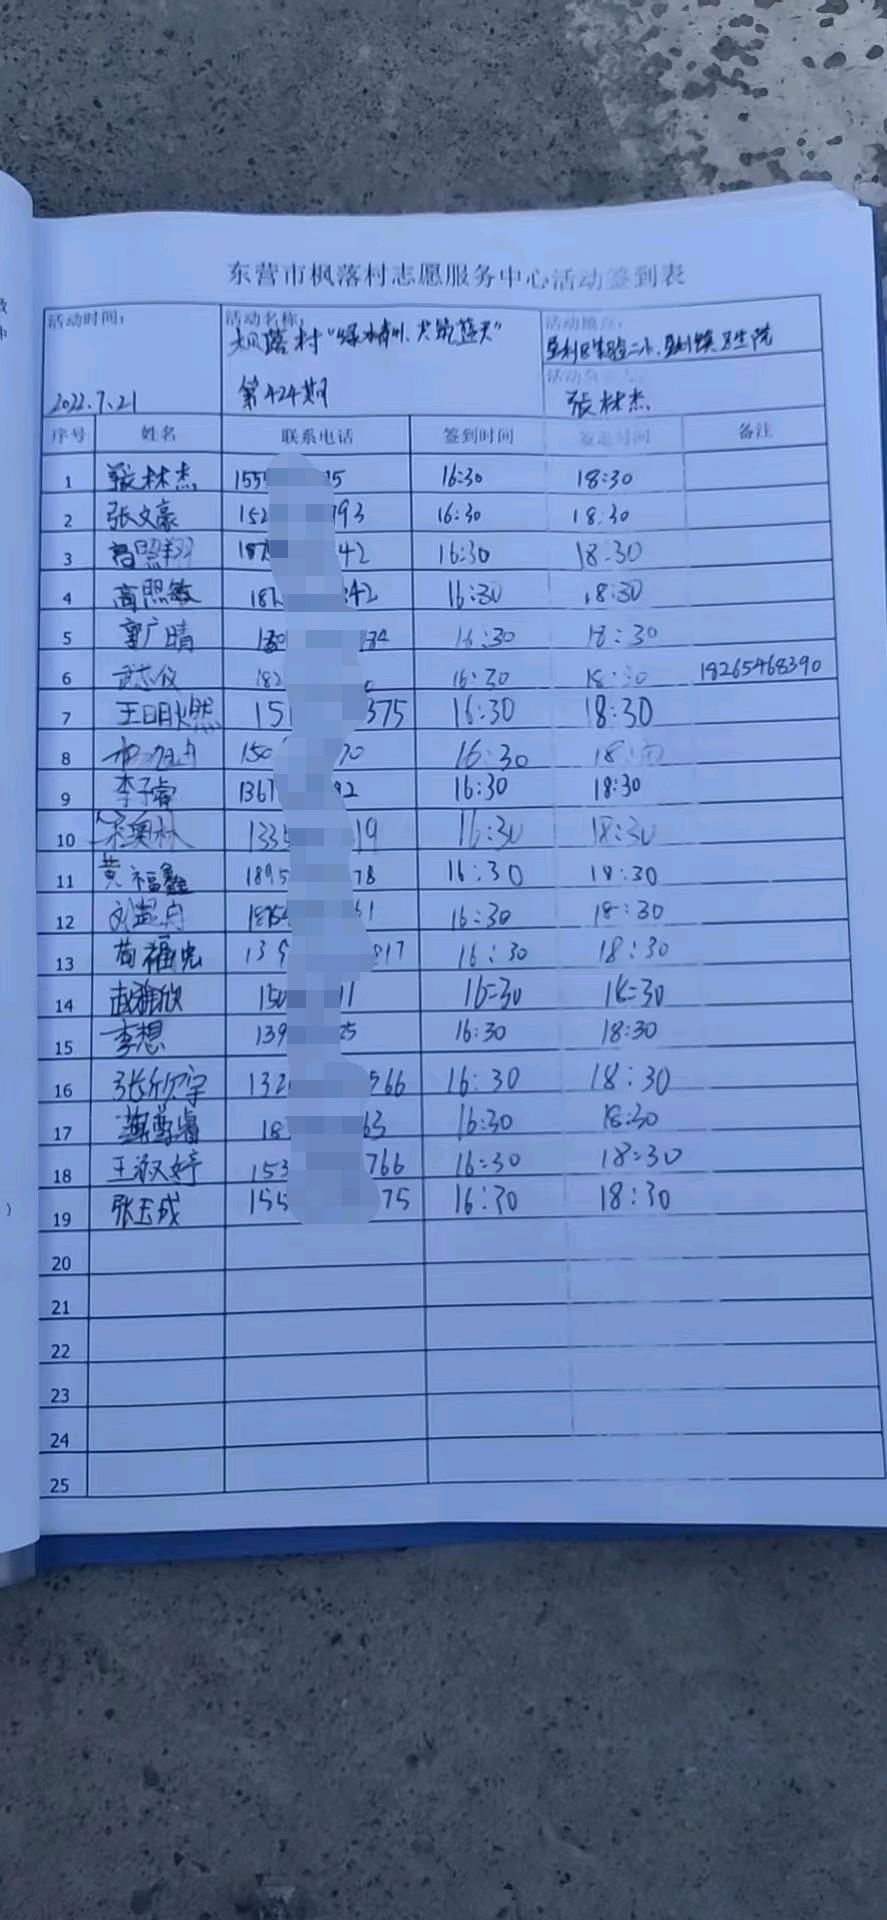 东营市枫落村志愿服务中心活动签到表
活动时间: 活动名称: 活动地点:
枫落村"绿水青山、共筑蓝天" 垦利区实验二小、垦利镇卫生院
2022.7.21 第424期 张林杰
序号 姓名 联系电话 签到时间 签退时间 备注
1 张林杰 155 5 16:30 18:30
2 张文豪 152 793 16:30 18:30
3 高照翔 187 42 16:30 18:30
4 高照敏 187 342 16:30 18:30
5 郭广晴 130 34 16:30 18:30
6 武志仪 182 0 16:30 18:30 18265468390
7 王明燃 151 375 16:30 18:30
8 150 70 16:30 18:30
9 李子睿 1367 92 16:30 18:30
10 宋奥林 1335 19 16:30 18:30
11 黄福鑫 1895 78 16:30 18:30
12 刘超舟 61 16:30 18:30
13 139 817 16:30 18:30
14 赵雅欣 150 11 16:30 18:30
15 李想 139 25 16:30 18:30
16 张欣宇 132 566 16:30 18:30
17 18 63 16:30 18:30
18 王淑婷 153 766 16:30 18:30
19 张玉成 155 75 16:30 18:30
20
21
22
23
24
25